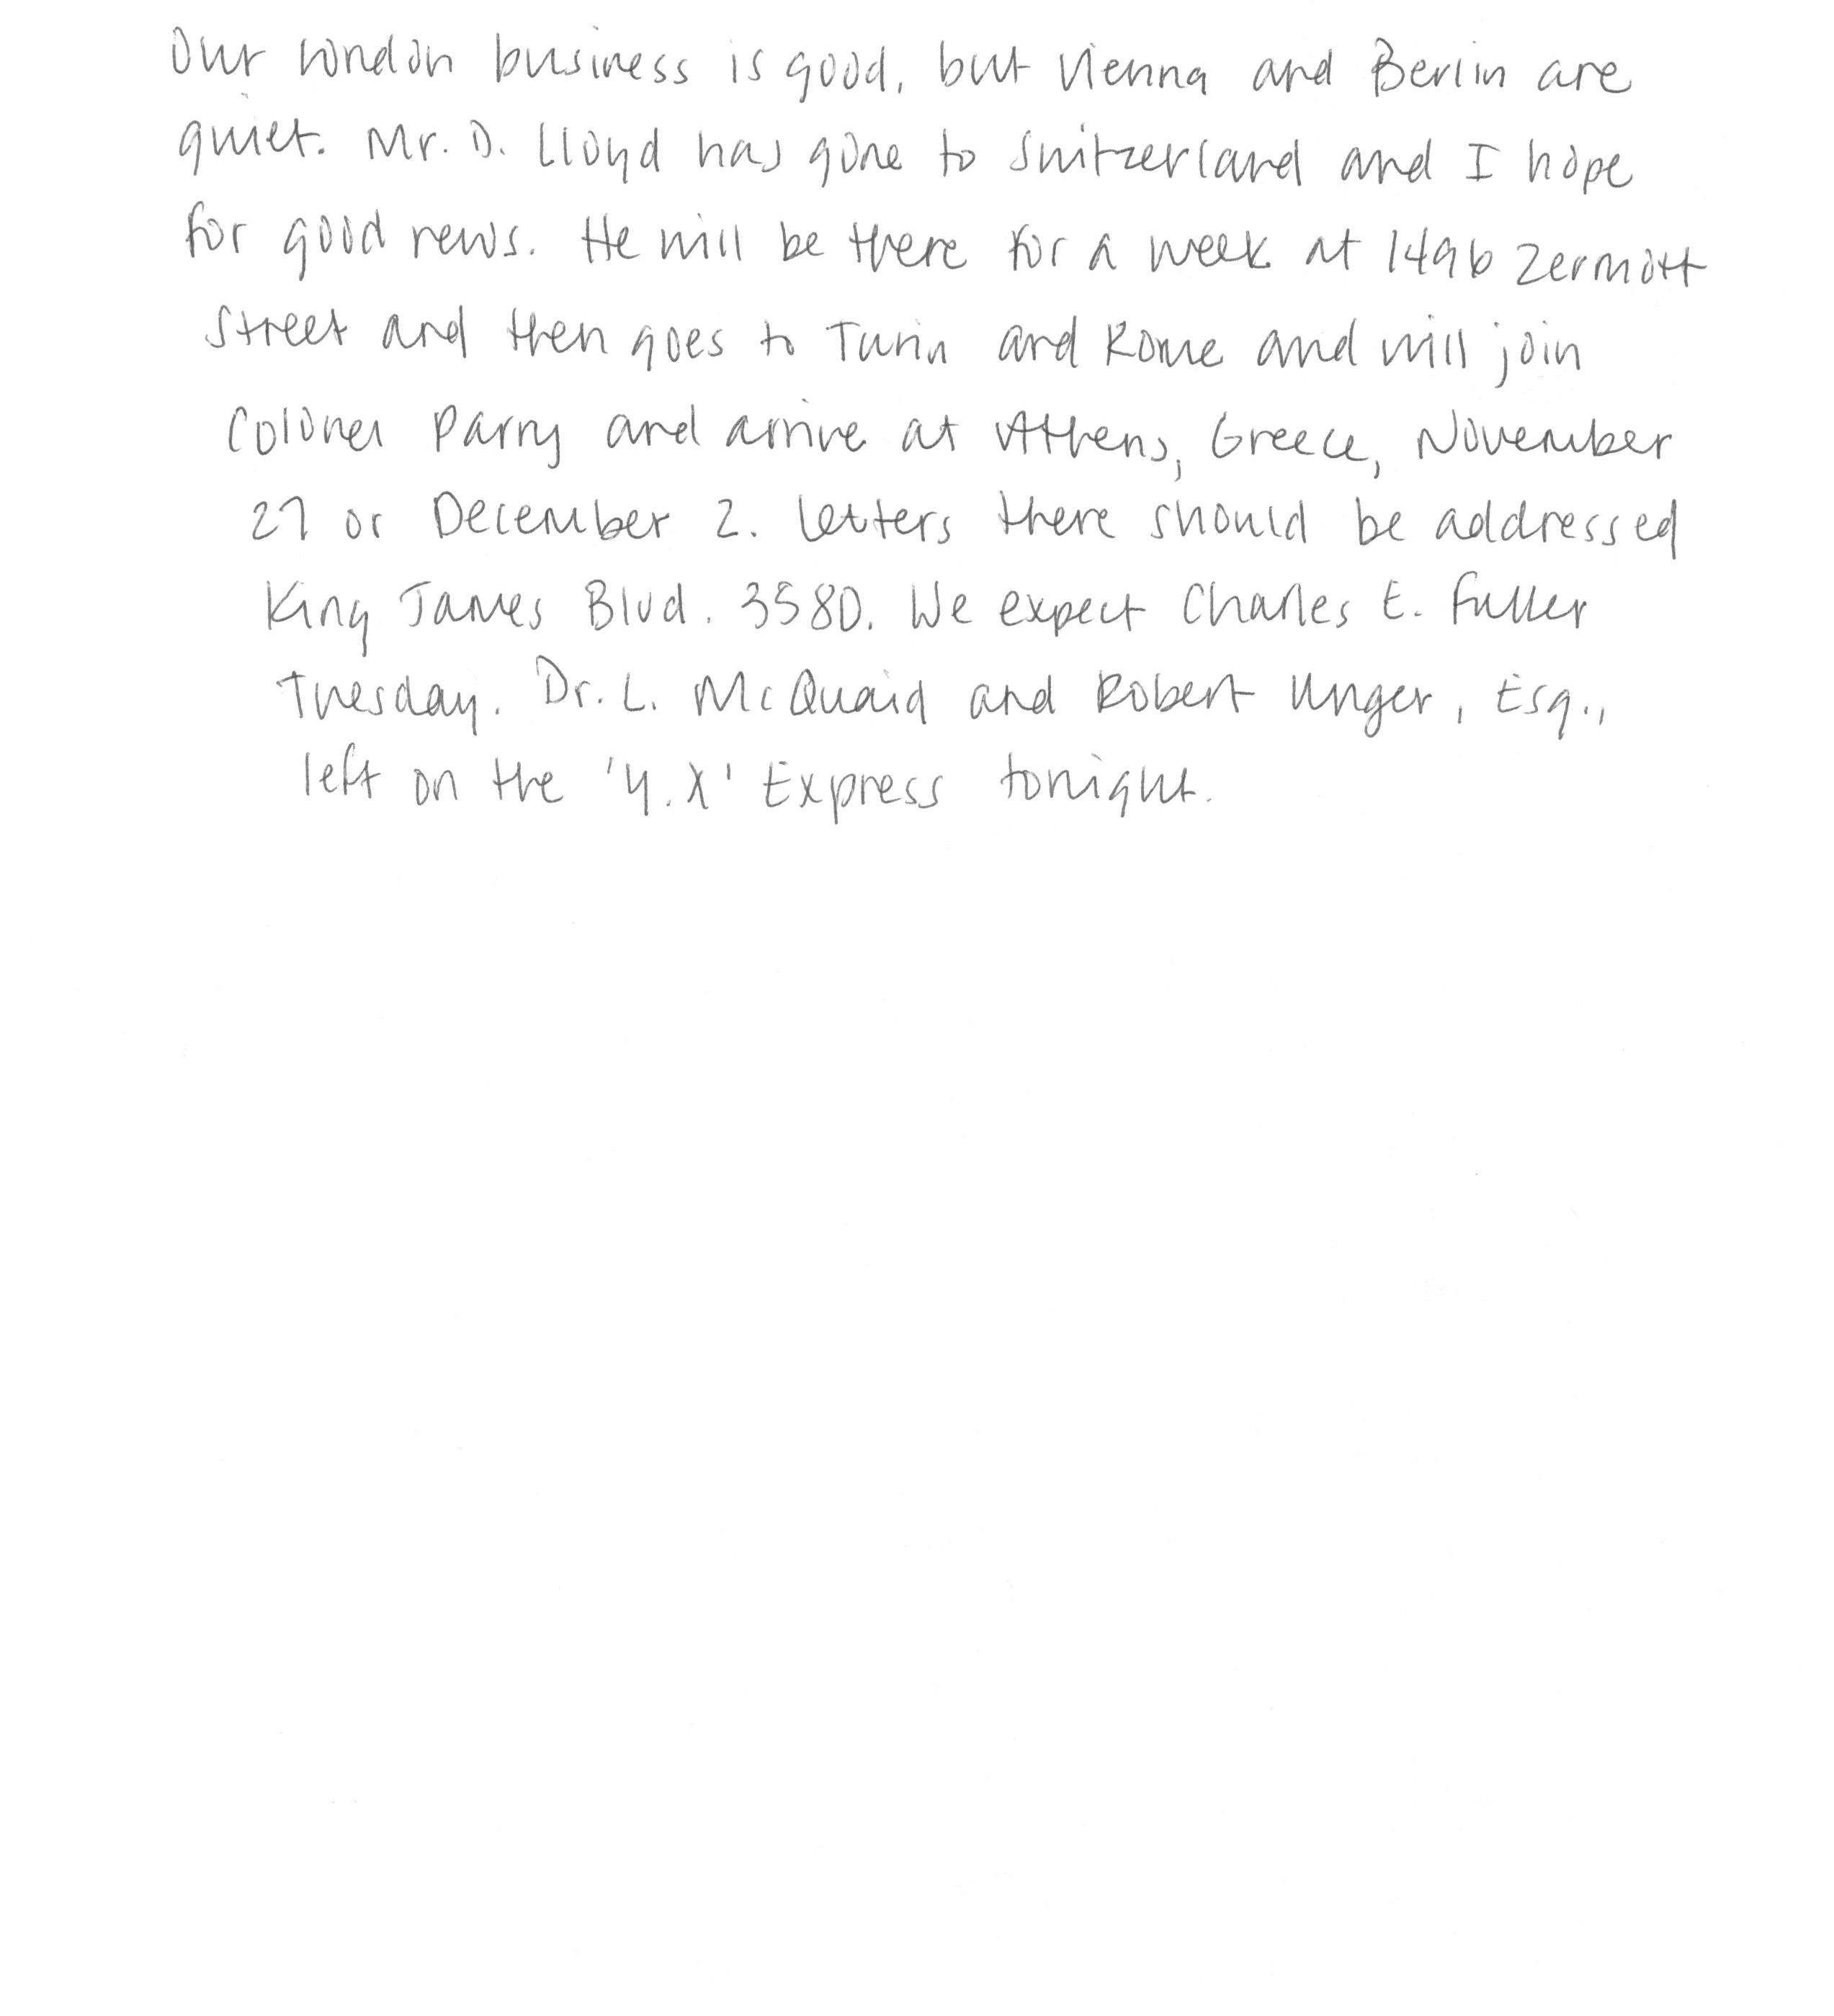 Our London business is good, but Vienna and Berlin are
quiet. Mr. D. Lloyd has gone to Switzerland and I hope
for good news. He will be there for a week at 1496 Zermott
Street and then goes to Turin and Rome and will join
Colonel Parry and arrive at Athens, Greece, November
27 or December 2. Letters there should be addressed
King James Blvd. 3580. We expect Charles E. Fuller
Tuesday. Dr. L. McQuaid and Robert Unger, Esq.,
left on the 'Y.X' Express tonight.